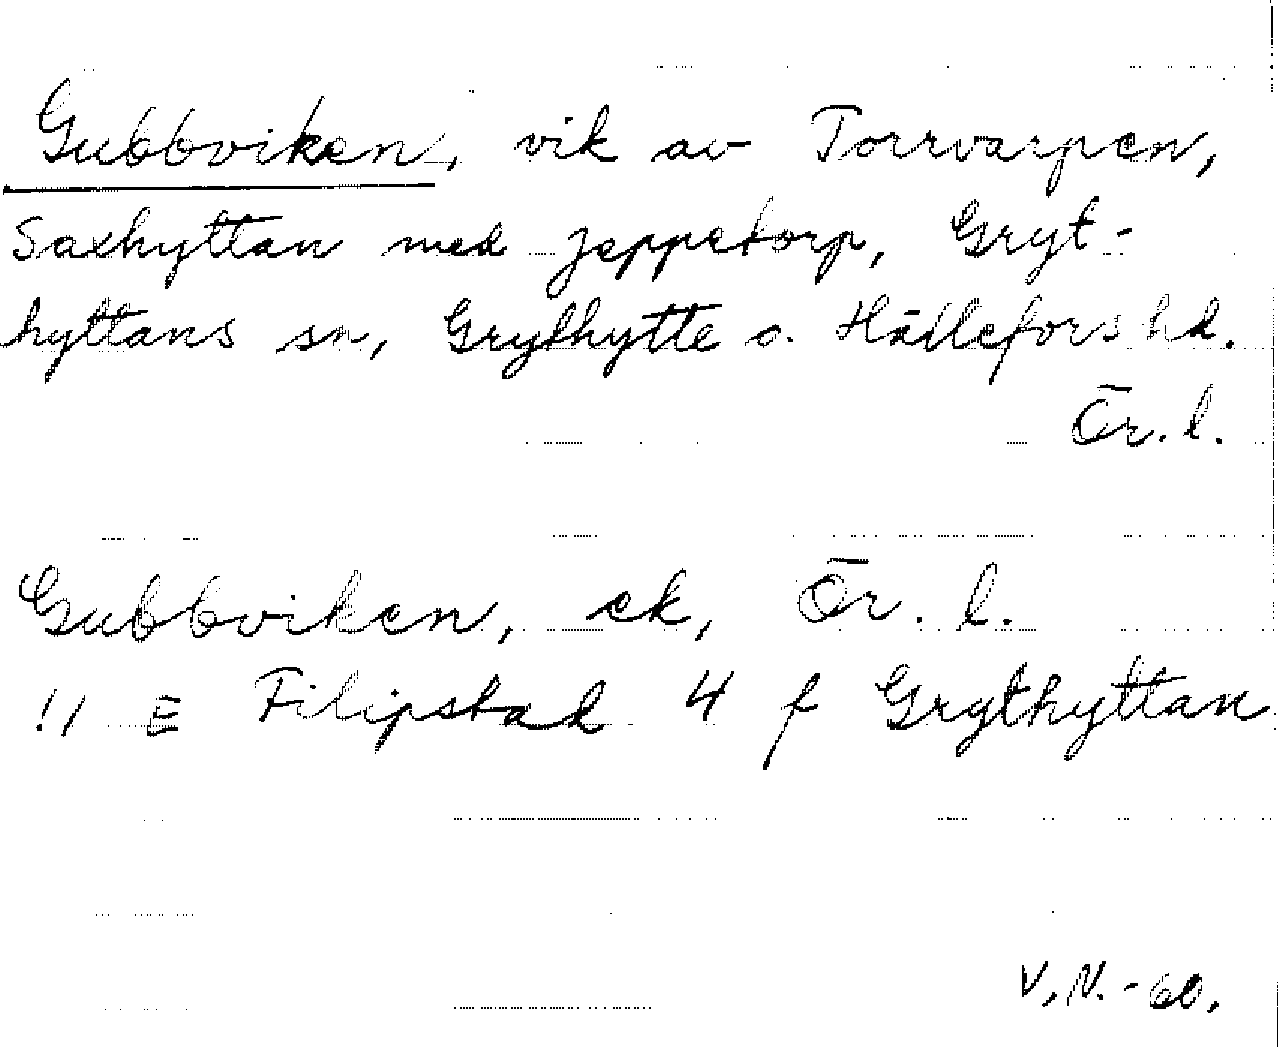 Gubbviken, vik av Torrvarpen,
Saxhyttan med Jeppetorp, Gryt-
hyttans sn, Grythytte o. Hällefors hd.
Ör. l.
Gubbviken, ek, Ör. l.
11 E Filipstad 4 f Grythyttan
V.N. -60.